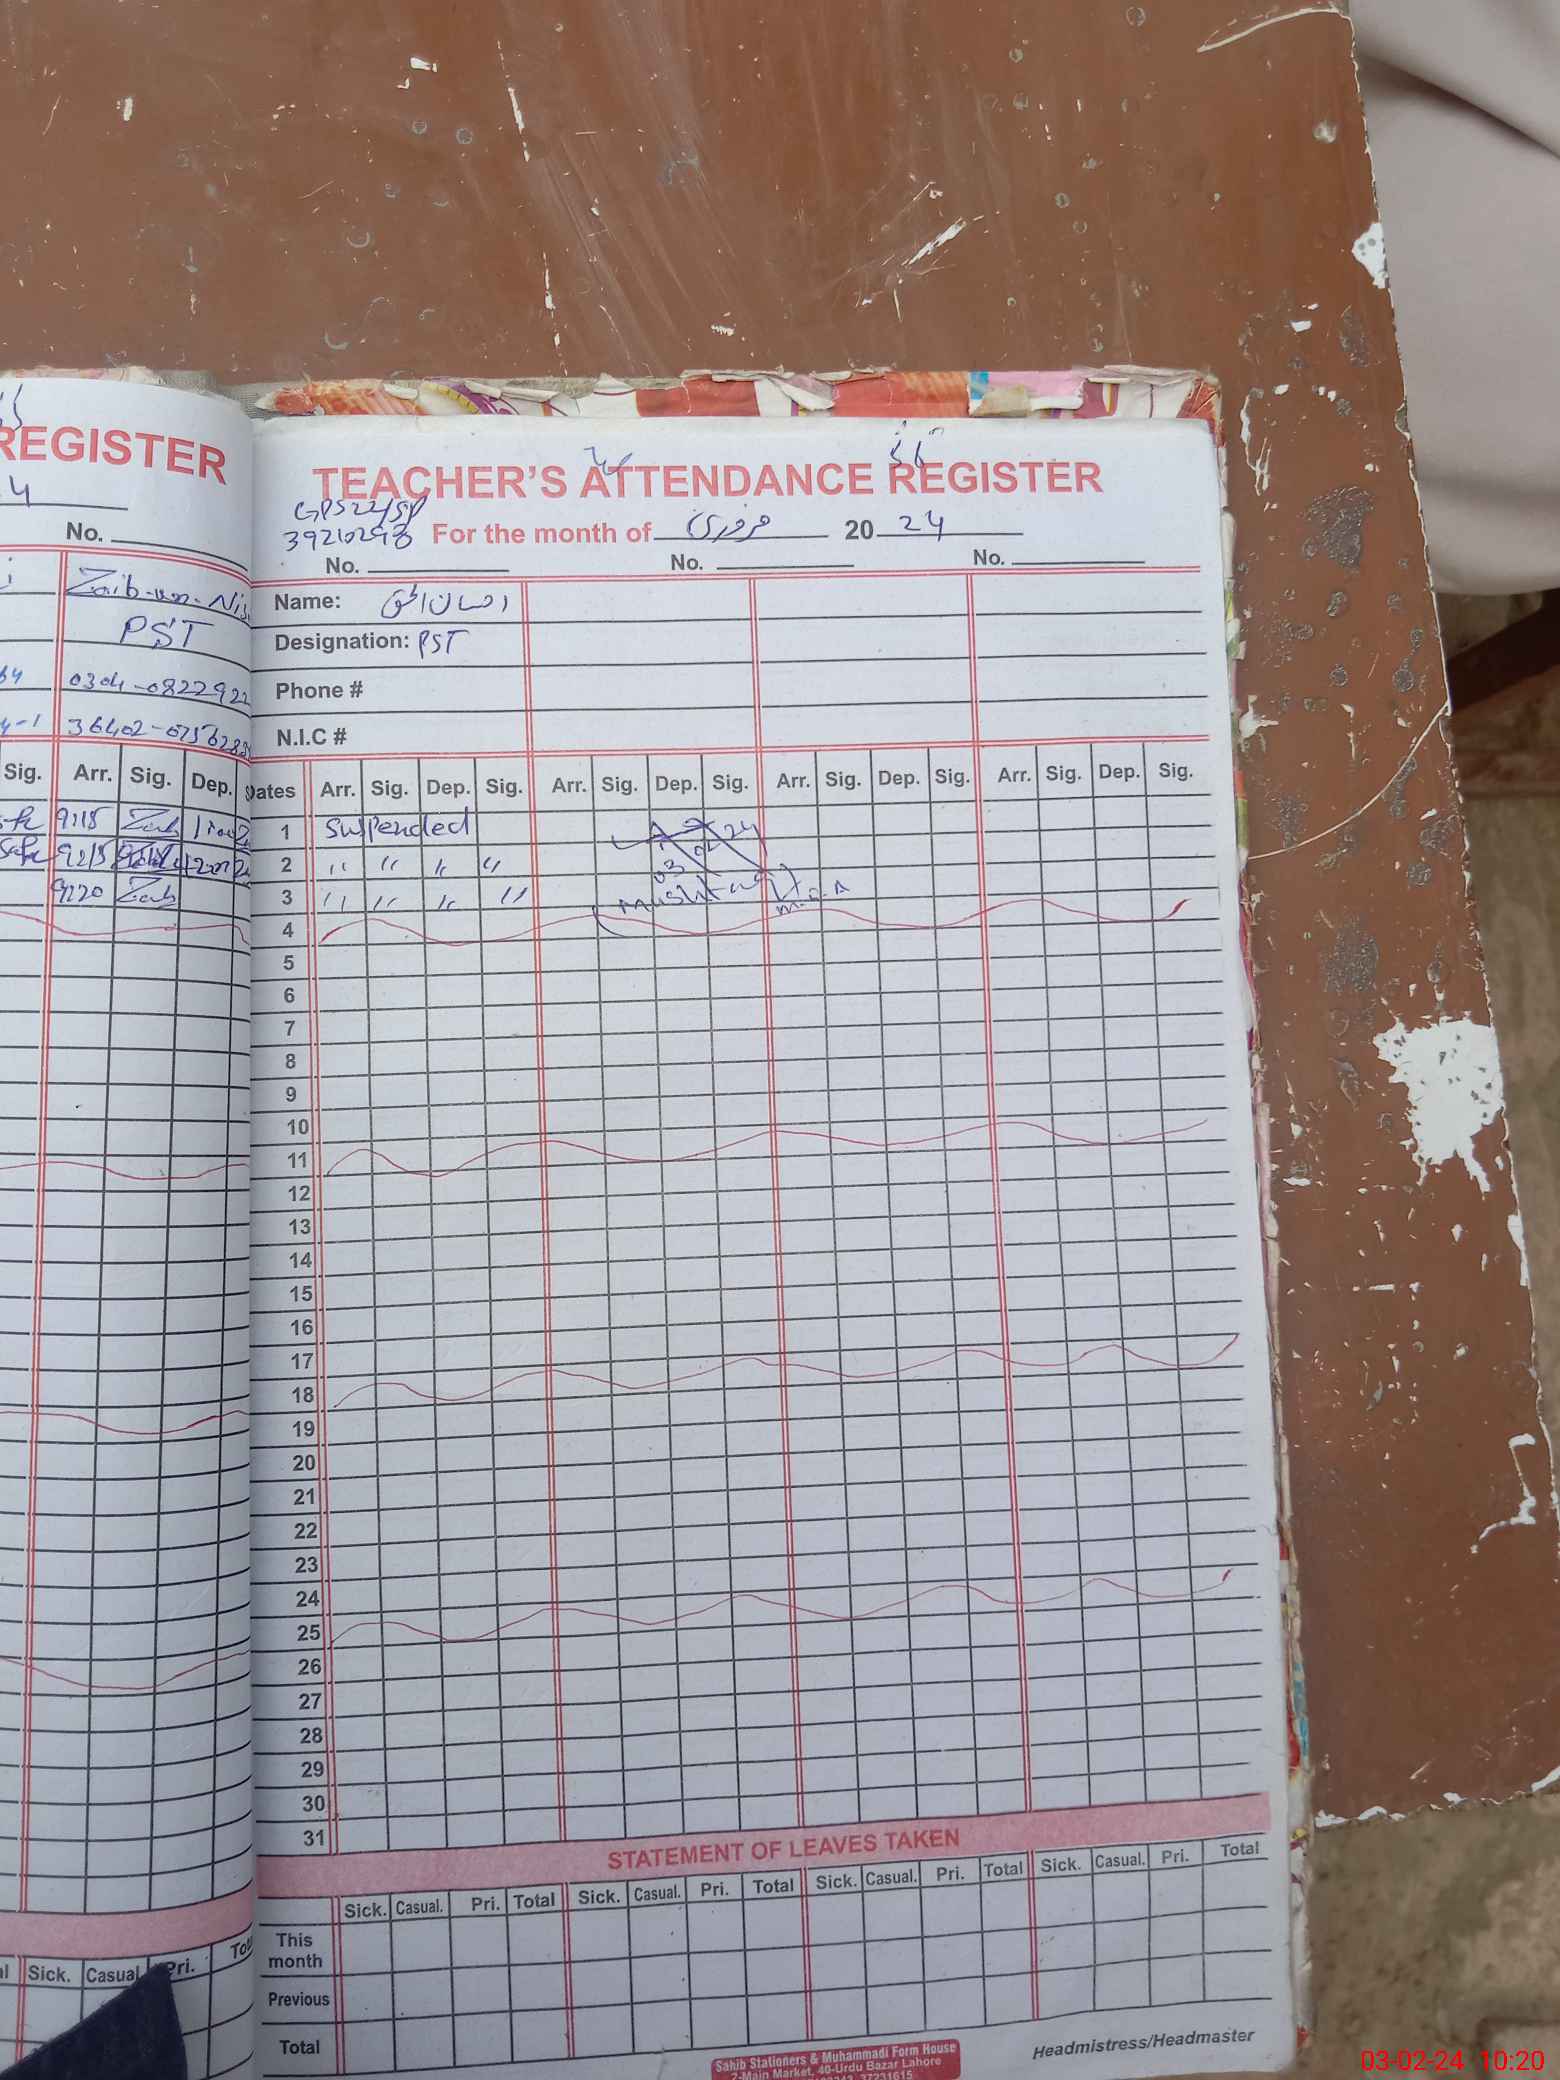 REGISTER
4
No.
Zaib-un-Nis
PST
64 0304-0822922
4-1 36402-0756288
Sig. Arr. Sig. Dep.
9:15 Zaib
9:15
9:20 Zaib
Sick. Casual Pri. Tot
TEACHER'S ATTENDANCE REGISTER
GPS 22/SP
39210293 For the month of فروری 2024
No. No. No.
Name: احسان الحق
Designation: PST
Phone #
N.I.C #
Dates Arr. Sig. Dep. Sig. Arr. Sig. Dep. Sig. Arr. Sig. Dep. Sig. Arr. Sig. Dep. Sig.
1 Suspended
2 " " " "
3 " " " "
03 02 24
Mushtaq
M.E.A
4
5
6
7
8
9
10
11
12
13
14
15
16
17
18
19
20
21
22
23
24
25
26
27
28
29
30
31
STATEMENT OF LEAVES TAKEN
Sick. Casual. Pri. Total Sick. Casual. Pri. Total Sick. Casual. Pri. Total Sick. Casual. Pri. Total
This month
Previous
Total
Headmistress/Headmaster
Sahib Stationers & Muhammadi Form House
2-Main Market, 40-Urdu Bazar Lahore
37231615
03-02-24 10:20